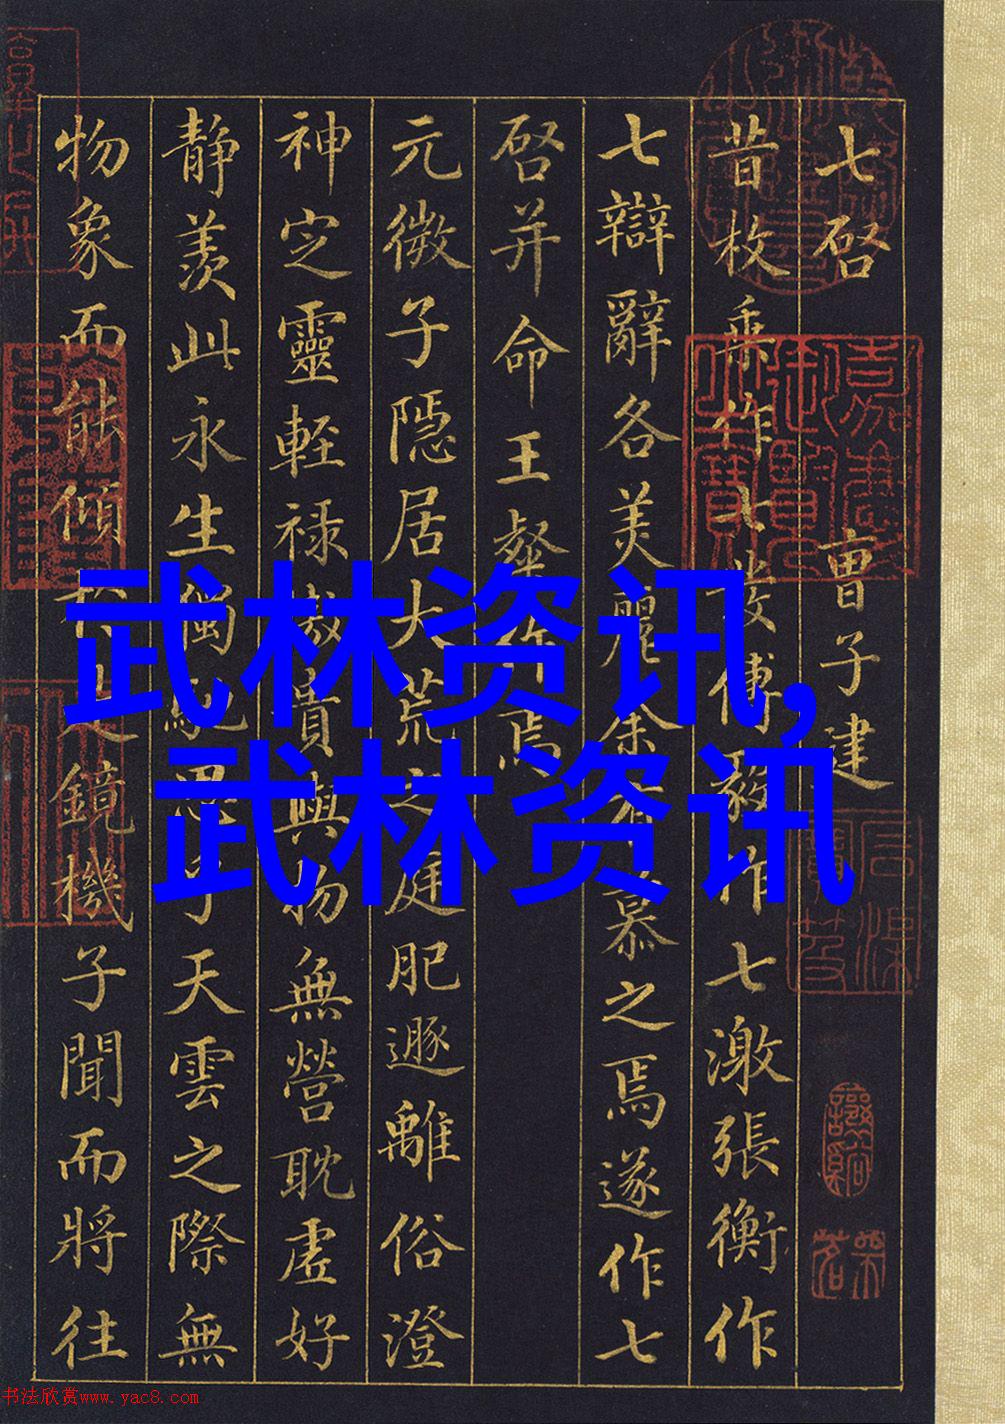 七啓 曹子建
昔枚乘作七發傅毅作七激張衡作
七辯辭各美麗余有慕之焉遂作七
啓并命王粲作焉
元微子隱居大荒之庭肥遯離俗澄
神定靈輕禄傲貴與物無營耽虛好
静羨此永生獨馳思于天雲之際無
物象而能傾於是鏡機子聞而將往
嘉慶御覽之寶
武林资讯,
武林资讯
书法欣赏www.yac8.com